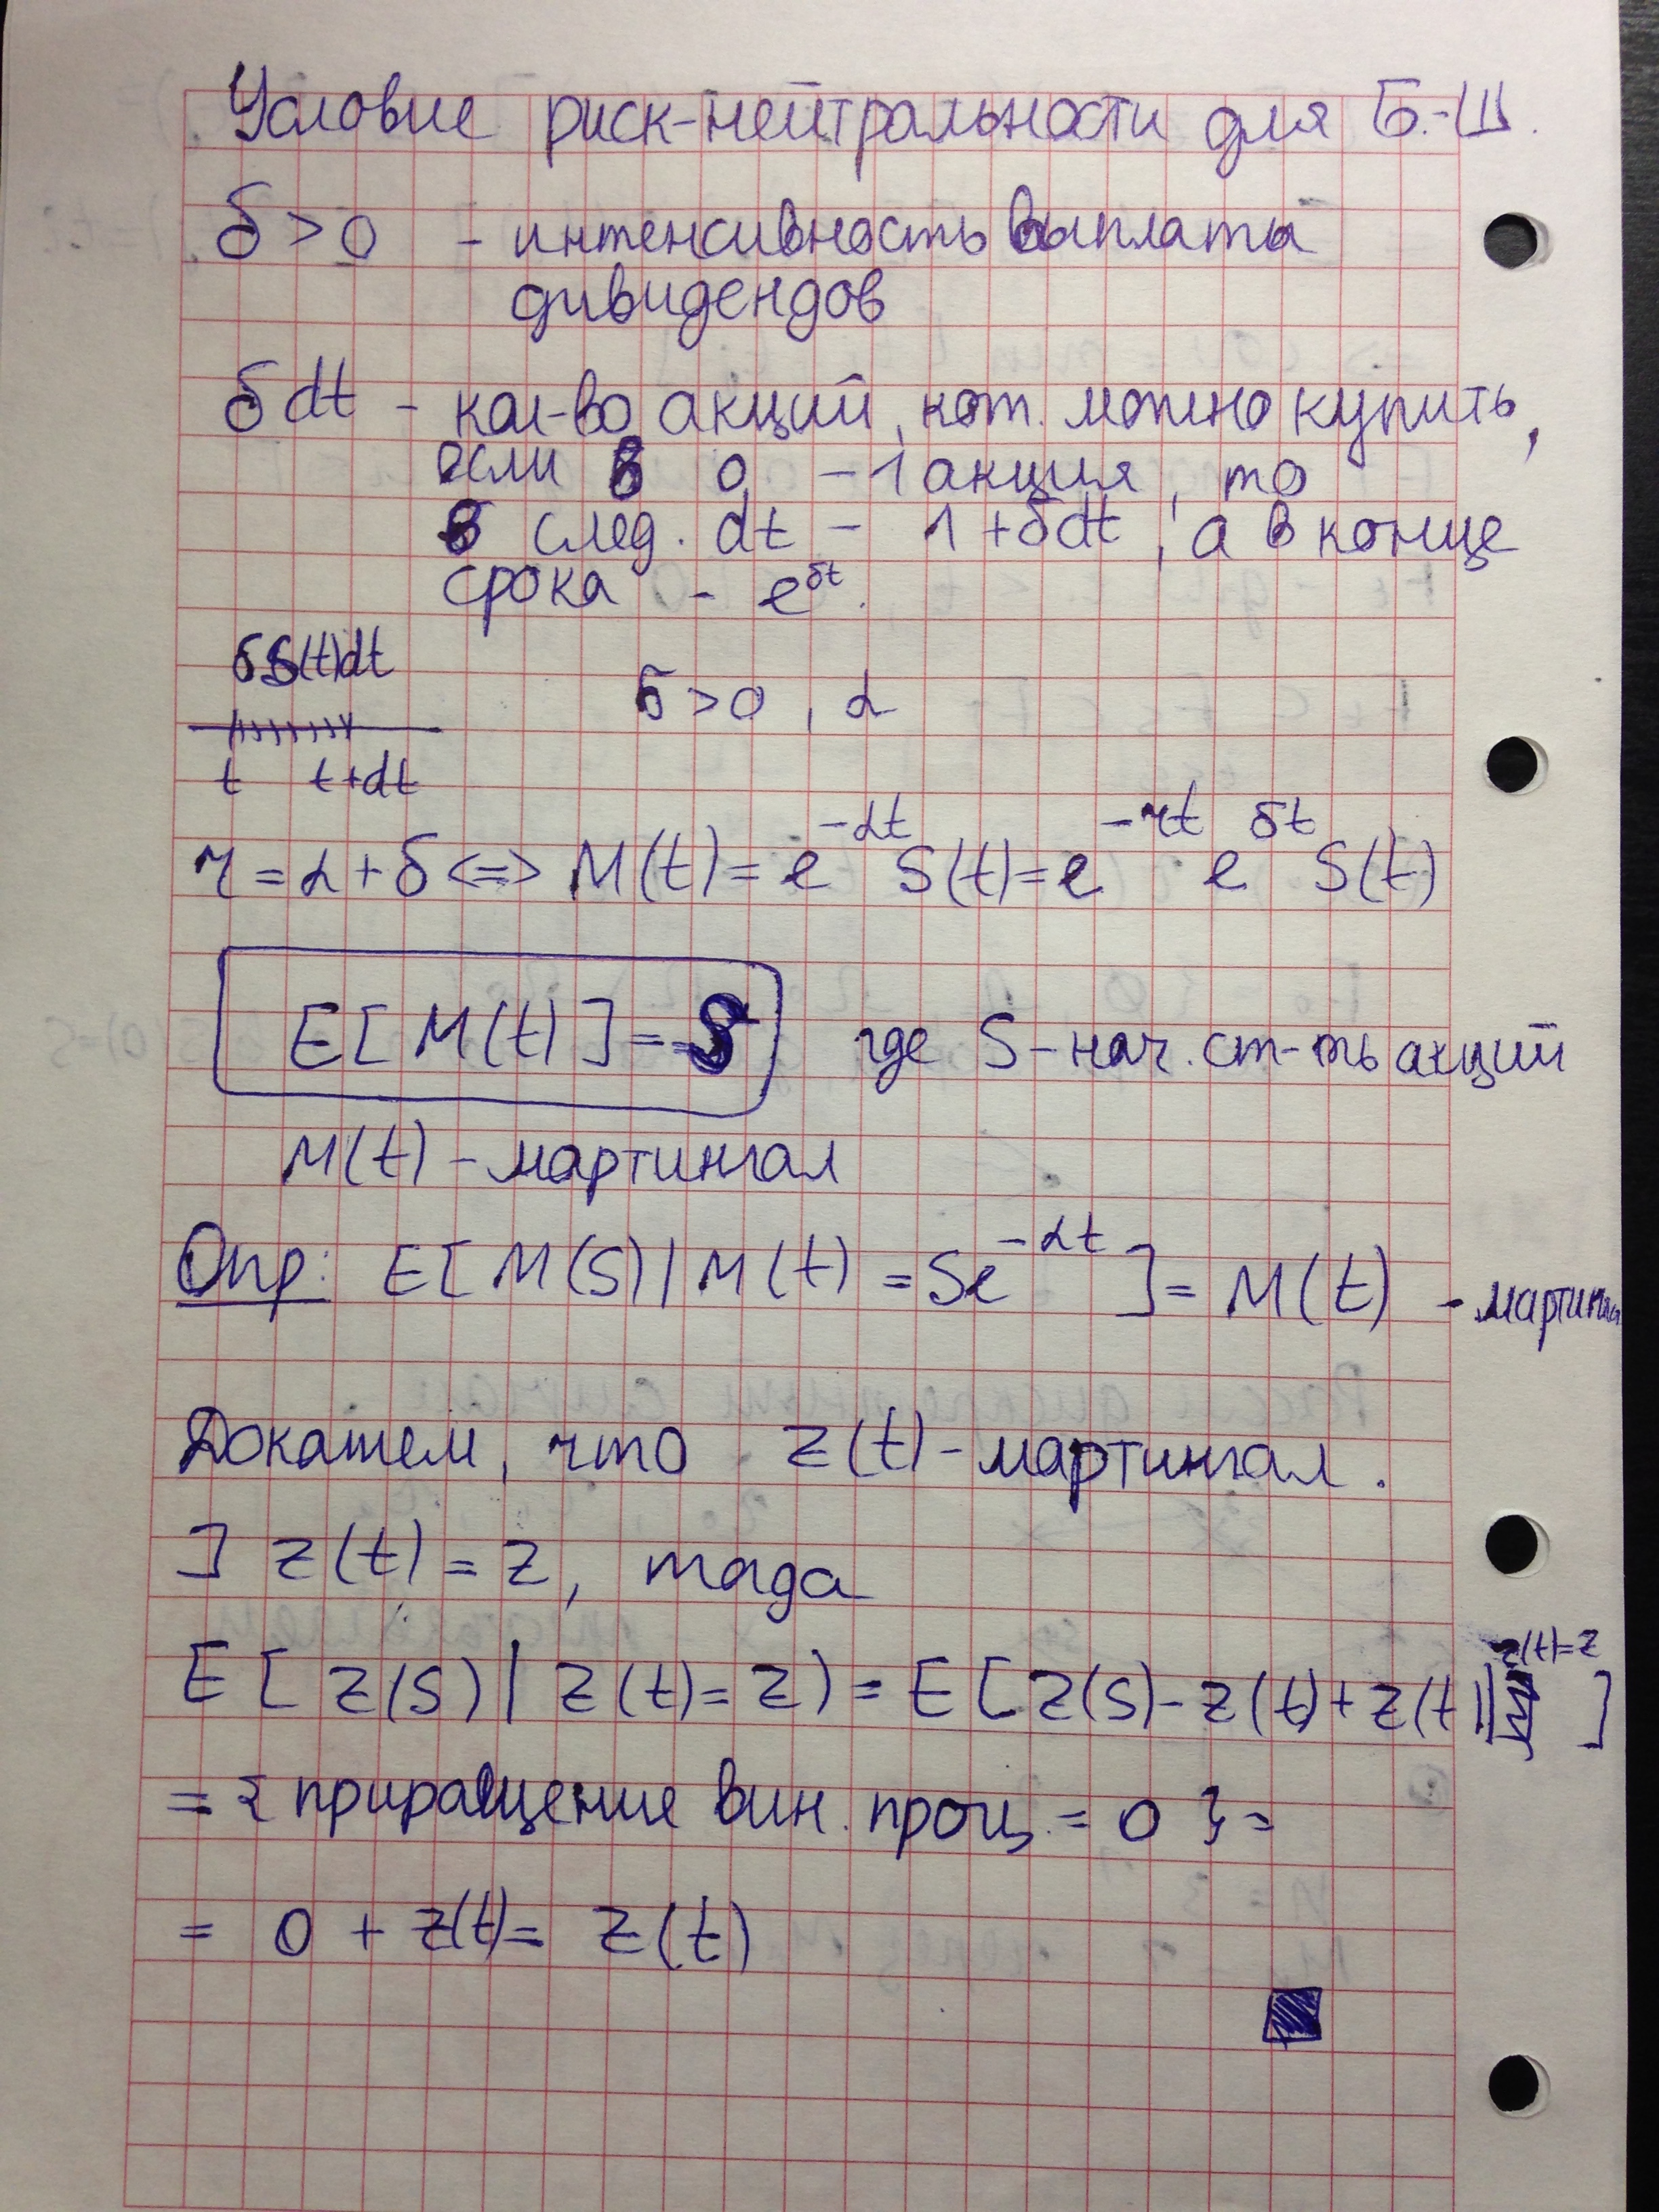 Условие риск-нейтральности для Б.-Ш.
δ > 0 - интенсивность выплаты
дивидендов
δdt - кол-во акций, кот. можно купить,
если в 0 - 1 акция, то
в след. dt - 1 + δdt, а в конце
срока - e^{δt}.
δS(t)dt
δ > 0, α
t t+dt
r = α + δ <=> M(t) = e^{-αt} S(t) = e^{-rt} e^{δt} S(t)
E[M(t)] = S где S - нач. ст-ть акций
M(t) - мартингал
Опр: E[M(s) | M(t) = Se^{-αt}] = M(t) - мартингал
Докажем, что z(t) - мартингал.
] z(t) = z, тогда
E[z(s) | z(t) = z) = E[z(s) - z(t) + z(t) | z(t)=z]
= {приращение вин. проц. = 0} =
= 0 + z(t) = z(t)